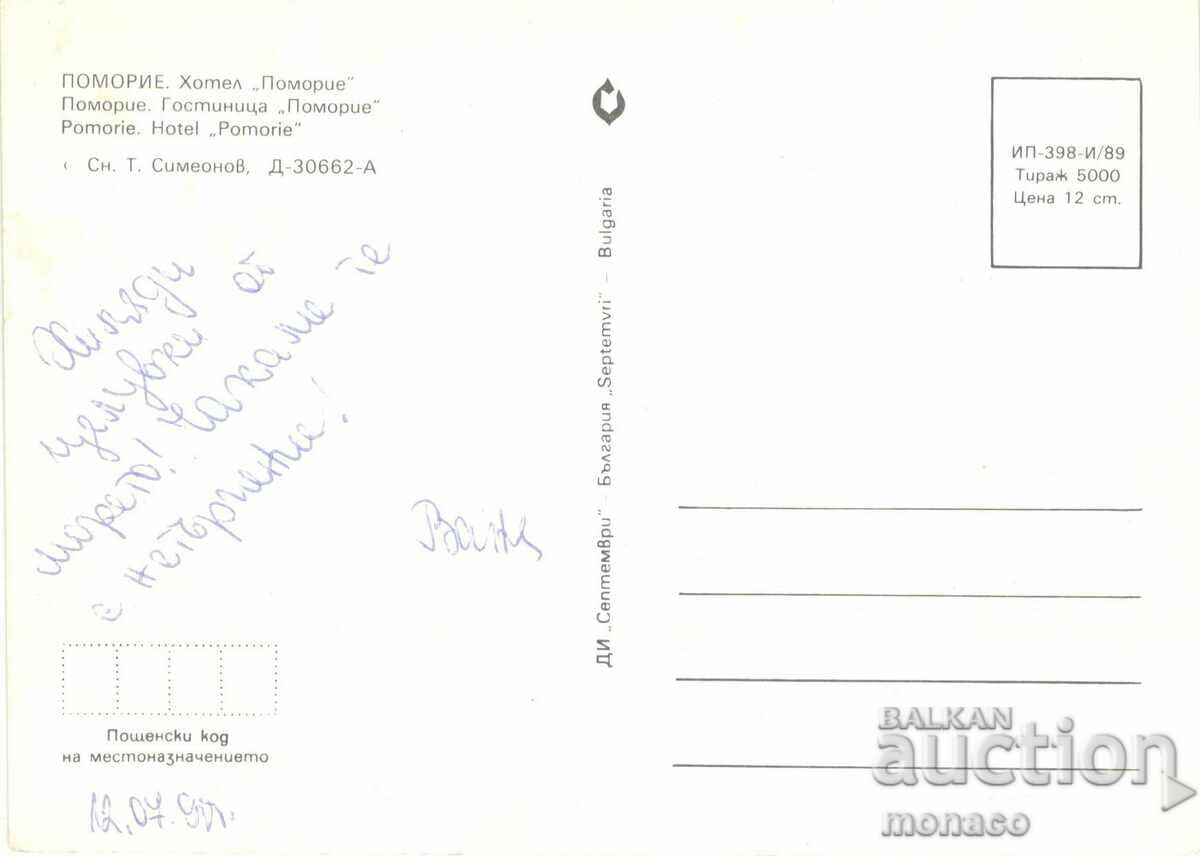 ПОМОРИЕ. Хотел „Поморие"
Поморие. Гостиница „Поморие"
Pomorie. Hotel „Pomorie"
Сн. Т. Симеонов, Д-30662-А
ИП-398-И/89
Тираж 5000
Цена 12 ст.
Хиляди
целувки от
морето! Чакаме те
с нетърпение!
Ваня
ДИ „Септември" – България „Septemvri" – Bulgaria
Пощенски код
на местоназначението
12.07.90г.
BALKAN
auction
monaco